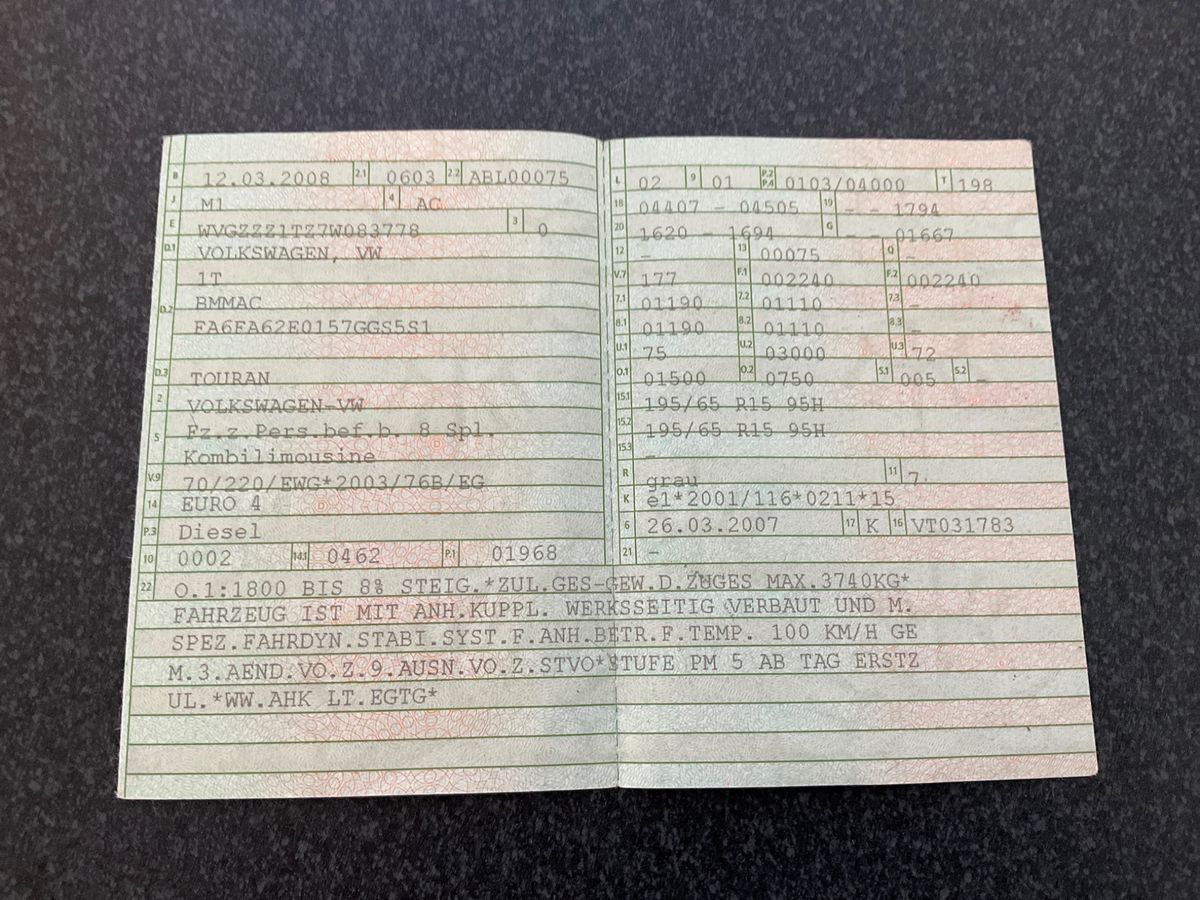 B 12.03.2008 2.1 0603 2.2 ABL00075
J M1 4 AC
E WVGZZZ1TZ7W083778 3 0
D.1 VOLKSWAGEN, VW
1T
D.2 BMMAC
FA6FA62E0157GGS5S1
D.3 TOURAN
2 VOLKSWAGEN-VW
5 Fz.z.Pers.bef.b. 8 Spl.
Kombilimousine
V.9 70/220/EWG*2003/76B/EG
14 EURO 4
P.3 Diesel
10 0002 14.1 0462 P.1 01968
L 02 9 01 P.2 P.4 0103/04000 T 198
18 04407 - 04505 19 - - 1794
20 1620 - 1694 G - - 01667
12 - 13 00075 Q -
V.7 177 F.1 002240 F.2 002240
7.1 01190 7.2 01110 7.3 -
8.1 01190 8.2 01110 8.3 -
U.1 75 U.2 03000 U.3 72
O.1 01500 O.2 0750 S.1 005 S.2 -
15.1 195/65 R15 95H
15.2 195/65 R15 95H
15.3 -
R grau 11 7
K e1*2001/116*0211*15
6 26.03.2007 17 K 16 VT031783
21 -
22 O.1:1800 BIS 8% STEIG.*ZUL.GES-GEW.D.ZUGES MAX.3740KG*
FAHRZEUG IST MIT ANH.KUPPL. WERKSSEITIG VERBAUT UND M.
SPEZ.FAHRDYN.STABI.SYST.F.ANH.BETR.F.TEMP. 100 KM/H GE
M.3.AEND.VO.Z.9.AUSN.VO.Z.STVO*STUFE PM 5 AB TAG ERSTZ
UL.*WW.AHK LT.EGTG*